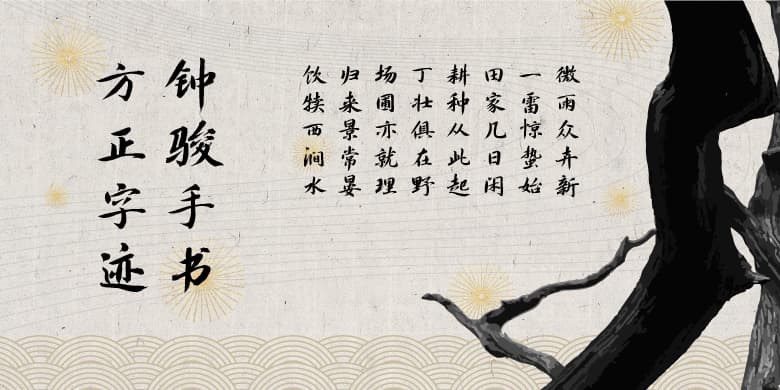 方正字迹
钟骏手书
微雨众卉新
一雷惊蛰始
田家几日闲
耕种从此起
丁壮俱在野
场圃亦就理
归来景常晏
饮犊西涧水